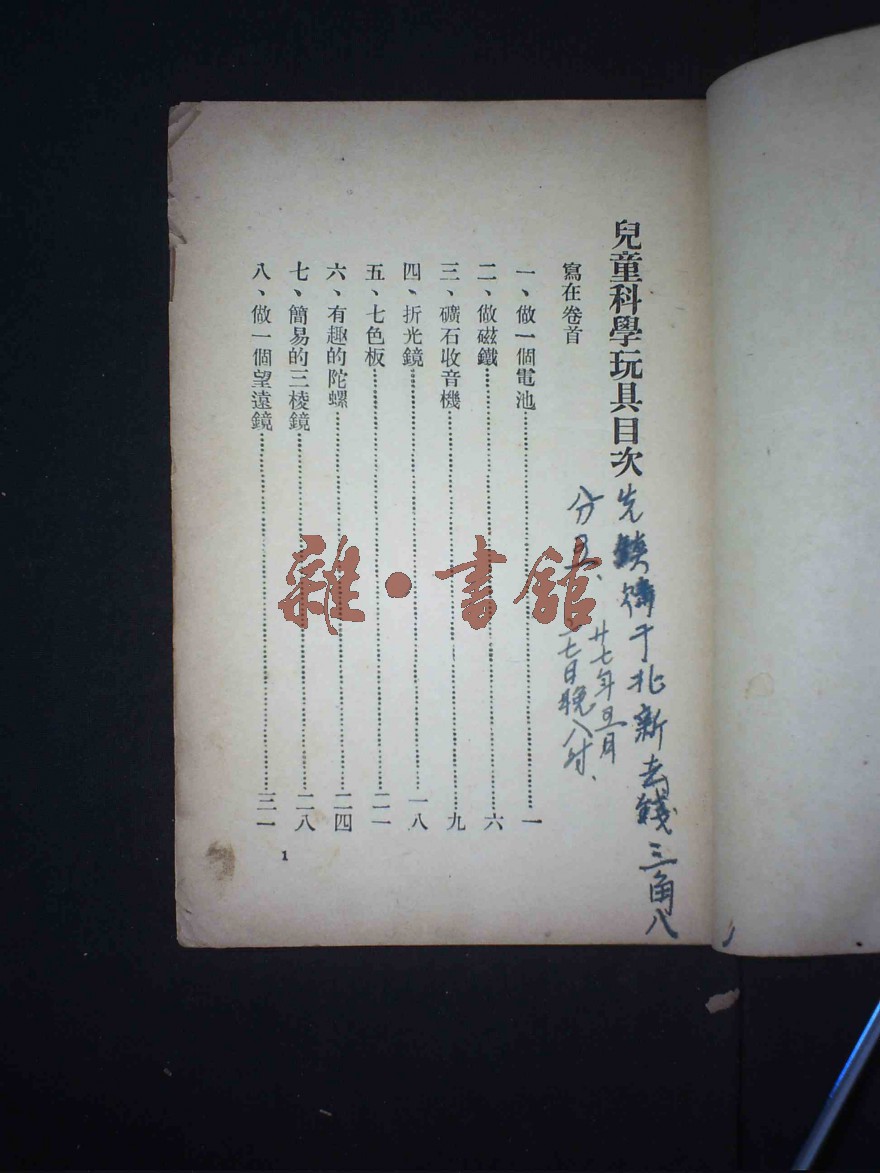 兒童科學玩具目次
寫在卷首
一、做一個電池……一
二、做磁鐵……六
三、礦石收音機……九
四、折光鏡……一八
五、七色板……二一
六、有趣的陀螺……二四
七、簡易的三棱鏡……二八
八、做一個望遠鏡……三一
1
先 于北新去錢三角八
分
廿七年 月
七日晚八时、
雜·書館